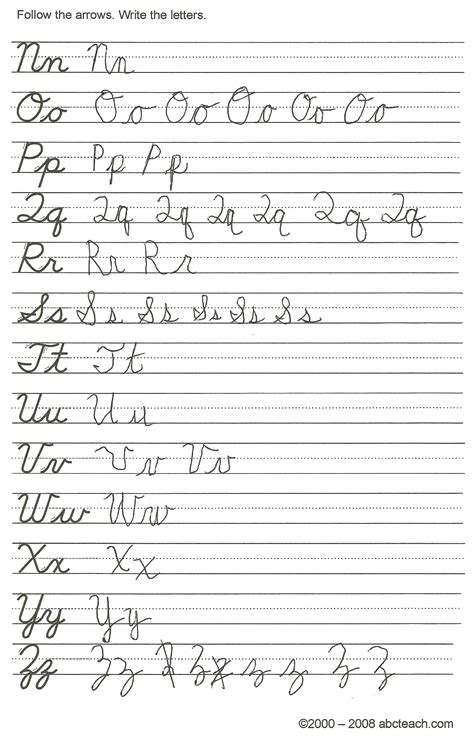 Follow the arrows. Write the letters.
Nn Nn
Oo Oo Oo Oo Oo Oo
Pp Pp Pp
Qq Qq Qq Qq Qq Qq Qq
Rr Rr Rr
Ss Ss Ss Ss Ss Ss
Tt Tt
Uu Uu
Vv Vv Vv
Ww Ww
Xx Xx
Yy Yy
Zz Zz Zz z z Z Z
©2000 – 2008 abcteach.com